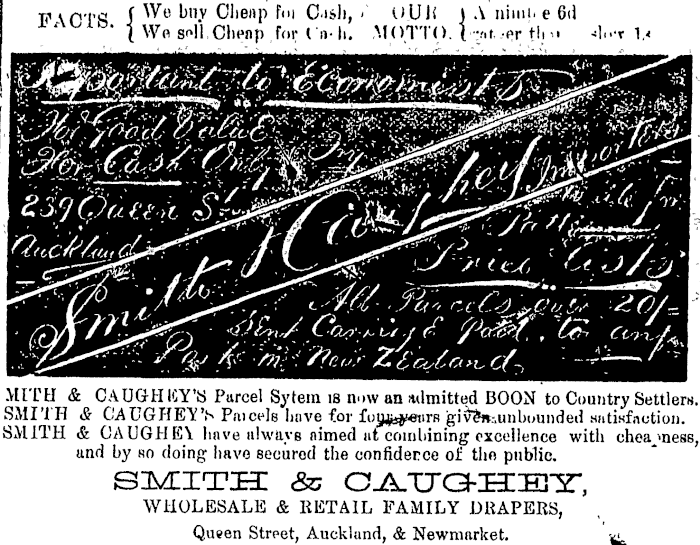 FACTS. { We buy Cheap for Cash, OUR } A nimble 6d
{ We sell Cheap for Cash. MOTTO. { 
Important to Economists
For Good Value
For Cash Only Try
239 Queen St
Auckland
Smith & Caughey Importers
Write for
Patterns &
Price Lists
All Parcels over 20/-
Sent Carriage Paid to any
Part in New Zealand
MITH & CAUGHEY'S Parcel Sytem is now an admitted BOON to Country Settlers.
SMITH & CAUGHEY'S Parcels have for four years given unbounded satisfaction.
SMITH & CAUGHEY have always aimed at combining excellence with cheapness,
and by so doing have secured the confidence of the public.
SMITH & CAUGHEY,
WHOLESALE & RETAIL FAMILY DRAPERS,
Queen Street, Auckland, & Newmarket.